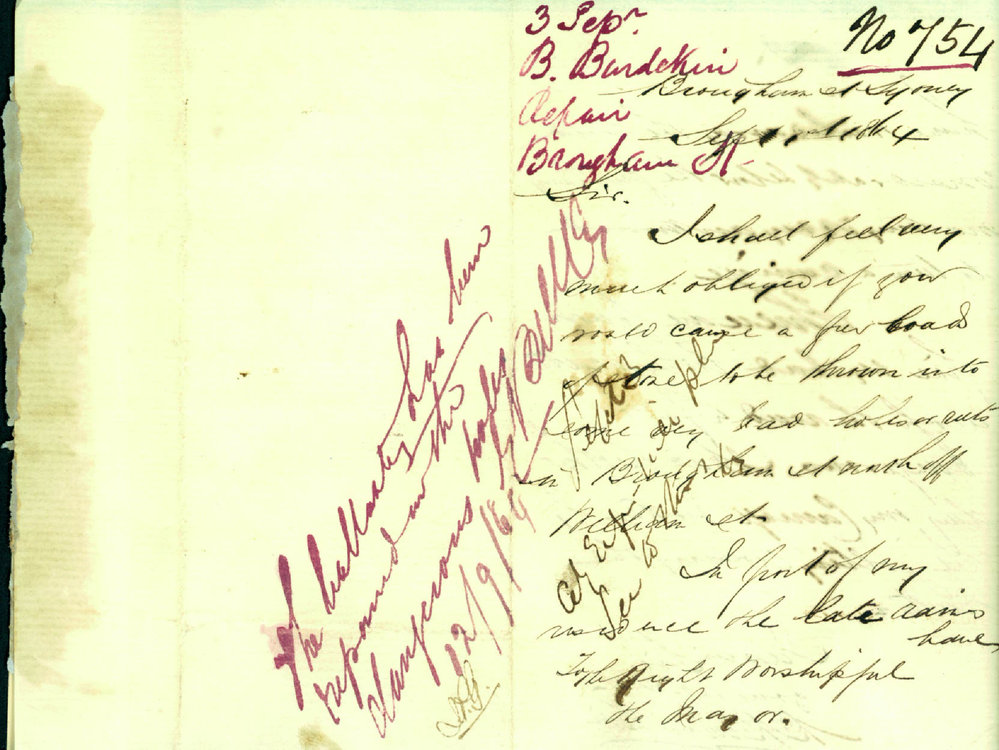 3 Sepr
B. Burdekin
Repair
Brougham St.
No 754
Brougham St Sydney
Sepr 1864
Sir.
I shall feel very
much obliged if you
would cause a few loads
of stone to be thrown into
some very bad holes or ruts
in Brougham St north off
William St.
In front of my
residence the late rains
have
To the Right Worshipful
the Mayor.
The ballasting has been
repaired in the
dangerous holes
12/9/64
City Engineer please
see to